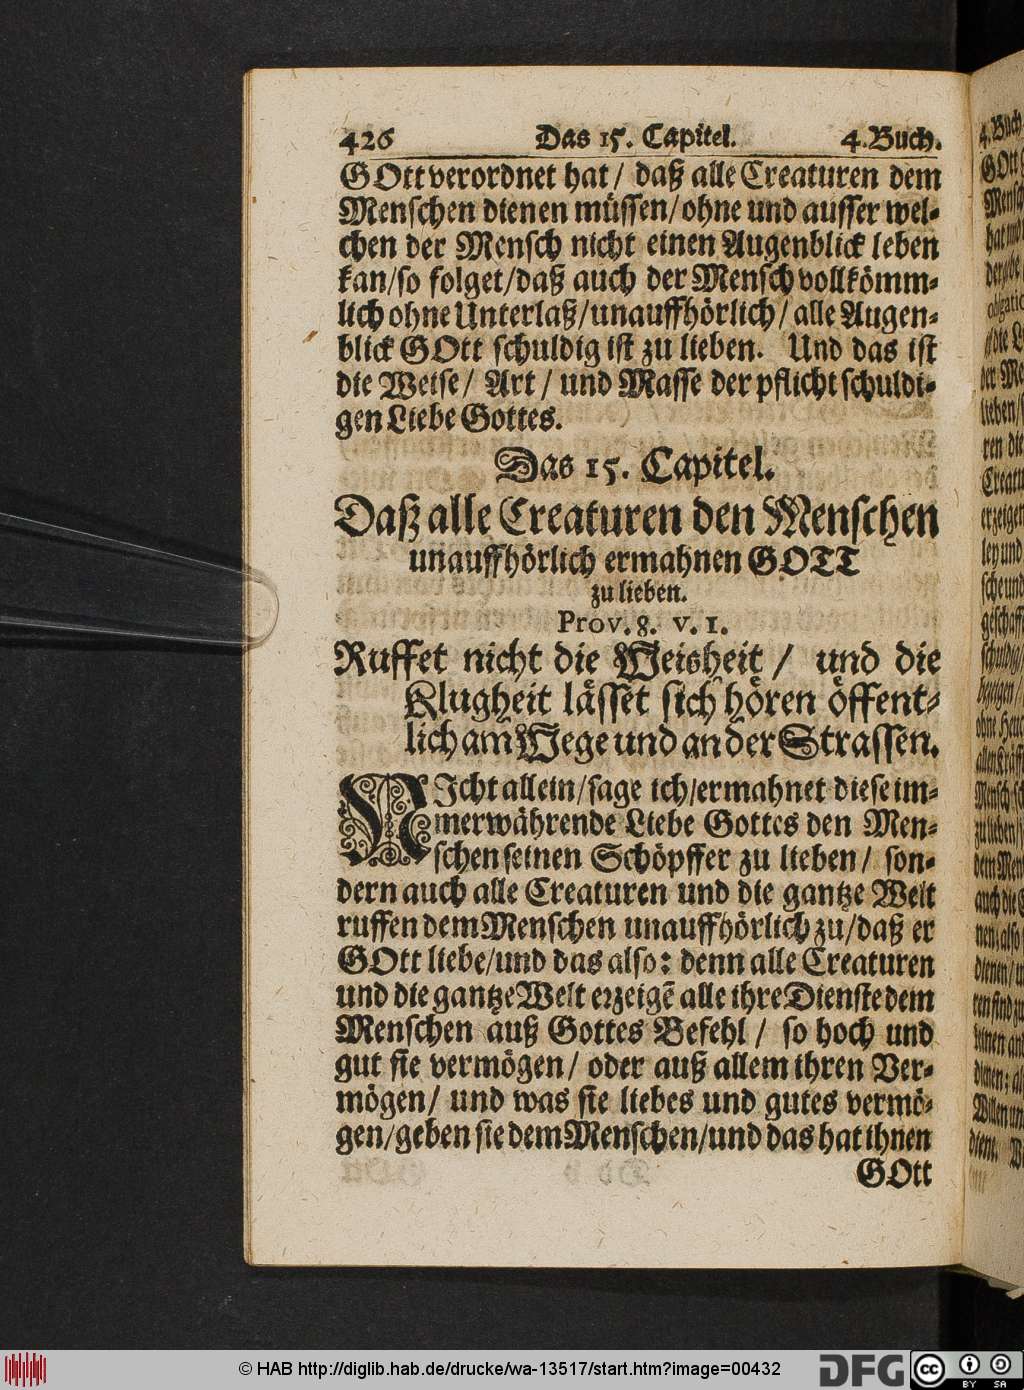 426 Das 15. Capitel. 4. Buch.
GOtt verordnet hat / daß alle Creaturen dem
Menschen dienen müssen / ohne und ausser wel-
chen der Mensch nicht einen Augenblick leben
kan / so folget / daß auch der Mensch vollkömm-
lich ohne Unterlaß / unauffhörlich / alle Augen-
blick GOtt schuldig ist zu lieben. Und das ist
die Weise / Art / und Masse der pflichtschuldi-
gen Liebe Gottes.
Das 15. Capitel.
Daß alle Creaturen den Menschen
unauffhörlich ermahnen GOTT
zu lieben.
Prov. 8. v. 1.
Ruffet nicht die Weisheit / und die
Klugheit lässet sich hören öffent-
lich am Wege und an der Strassen.
NIcht allein / sage ich / ermahnet diese im-
merwährende Liebe Gottes den Men-
schen seinen Schöpffer zu lieben / son-
dern auch alle Creaturen und die gantze Welt
ruffen dem Menschen unauffhörlich zu / daß er
GOtt liebe / und das also: denn alle Creaturen
und die gantze Welt erzeigē alle ihre Dienste dem
Menschen auß Gottes Befehl / so hoch und
gut sie vermögen / oder auß allem ihren Ver-
mögen / und was sie liebes und gutes vermö-
gen / geben sie dem Menschen / und das hat ihnen
GOtt
© HAB http://diglib.hab.de/drucke/wa-13517/start.htm?image=00432
DFG
cc BY SA